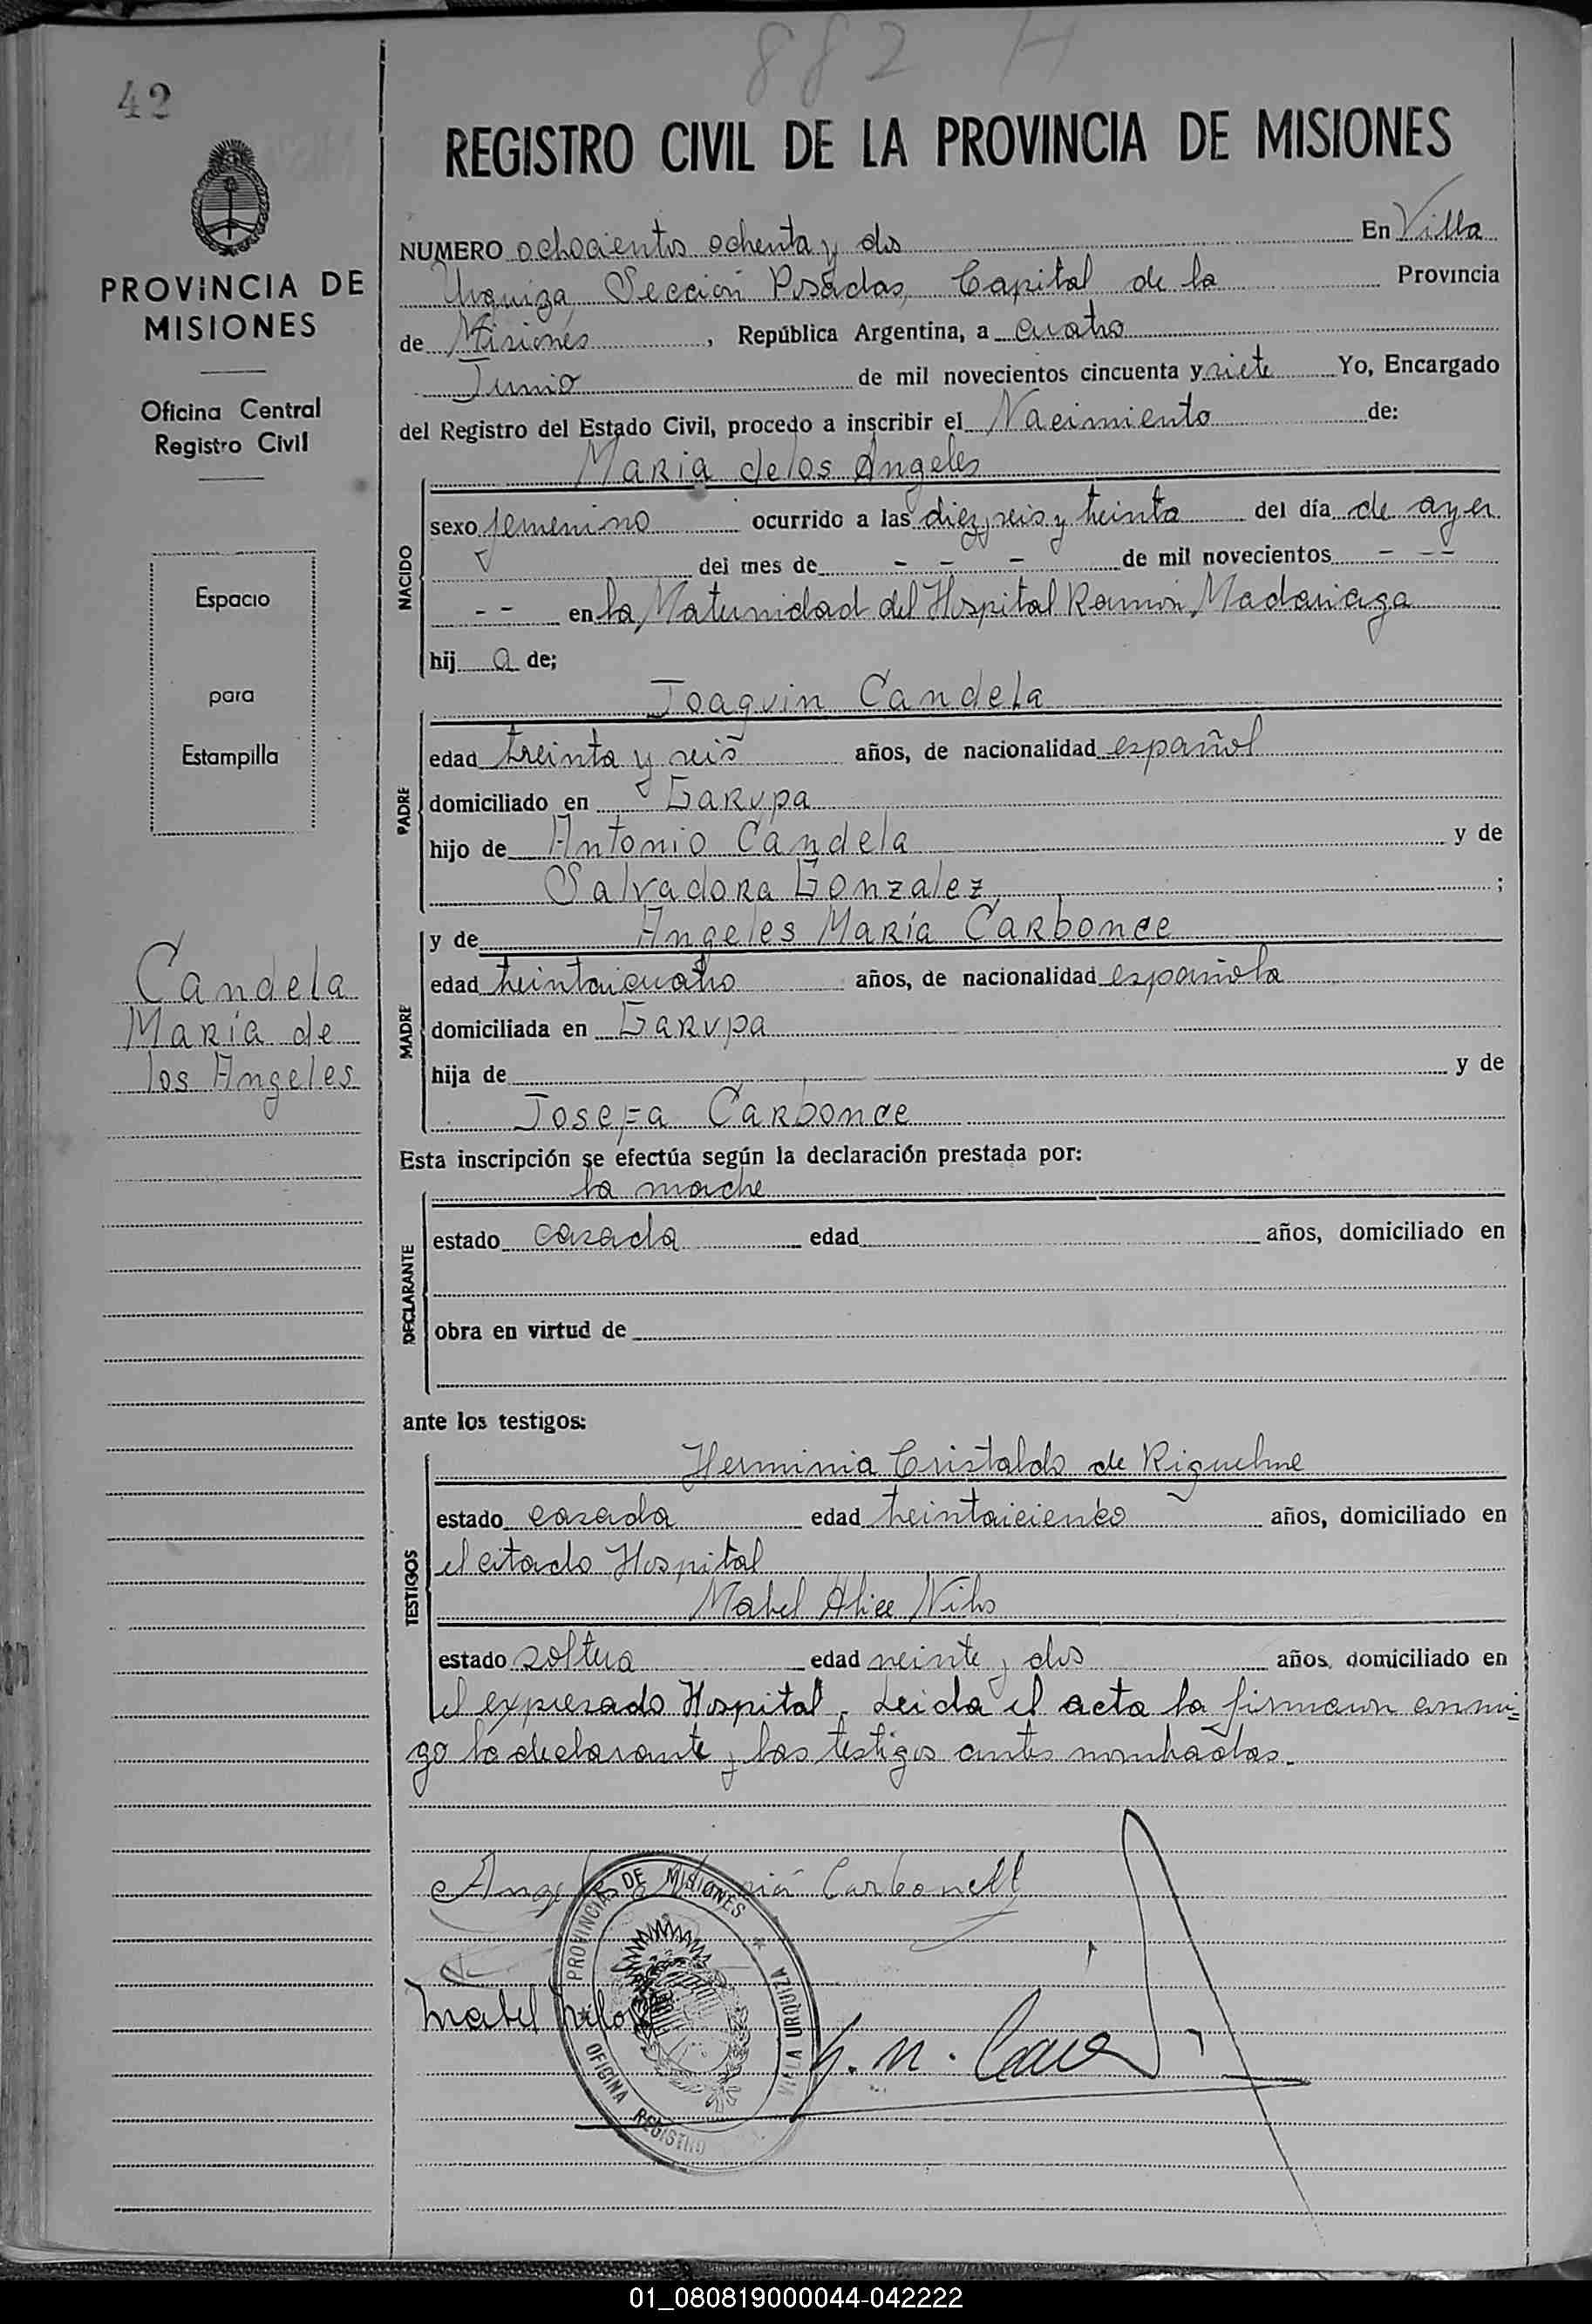 882 H
42
REGISTRO CIVIL DE LA PROVINCIA DE MISIONES
PROVINCIA DE
MISIONES
Oficina Central
Registro Civil
Espacio
para
Estampilla
Candela
María de
los Angeles
NUMERO ochocientos ochenta y dos En Villa
Urquiza, Sección Posadas, Capital de la Provincia
de Misiones, República Argentina, a cuatro
Junio de mil novecientos cincuenta y siete Yo, Encargado
del Registro del Estado Civil, procedo a inscribir el Nacimiento de:
NACIDO
María de los Angeles
sexo femenino ocurrido a las diez y seis y treinta del día de ayer
del mes de - - - de mil novecientos - --
-- en la Maternidad del Hospital Ramón Madariaga
hij a de;
PADRE
Joaquin Candela
edad treinta y seis años, de nacionalidad español
domiciliado en Garupa
hijo de Antonio Candela y de
Salvadora Gonzalez ;
MADRE
y de Angeles María Carbonee
edad treintaicuatro años, de nacionalidad española
domiciliada en Garupa
hija de y de
Josefa Carbonee
Esta inscripción se efectúa según la declaración prestada por:
DECLARANTE
la madre
estado casada edad años, domiciliado en
obra en virtud de
ante los testigos:
TESTIGOS
Herminia Cristaldo de Riquelme
estado casada edad treintaicinco años, domiciliado en
el citado Hospital
Mabel Alice Nilos
estado soltera edad veinte y dos años, domiciliado en
el expresado Hospital. Leida el acta la firmaron conmi=
go la declarante y las testigos antes nombradas.
Angeles María Carbonell
Mabel Nilos
PROVINCIA DE MISIONES * VILLA URQUIZA
OFICINA REGISTRO
01_080819000044-042222